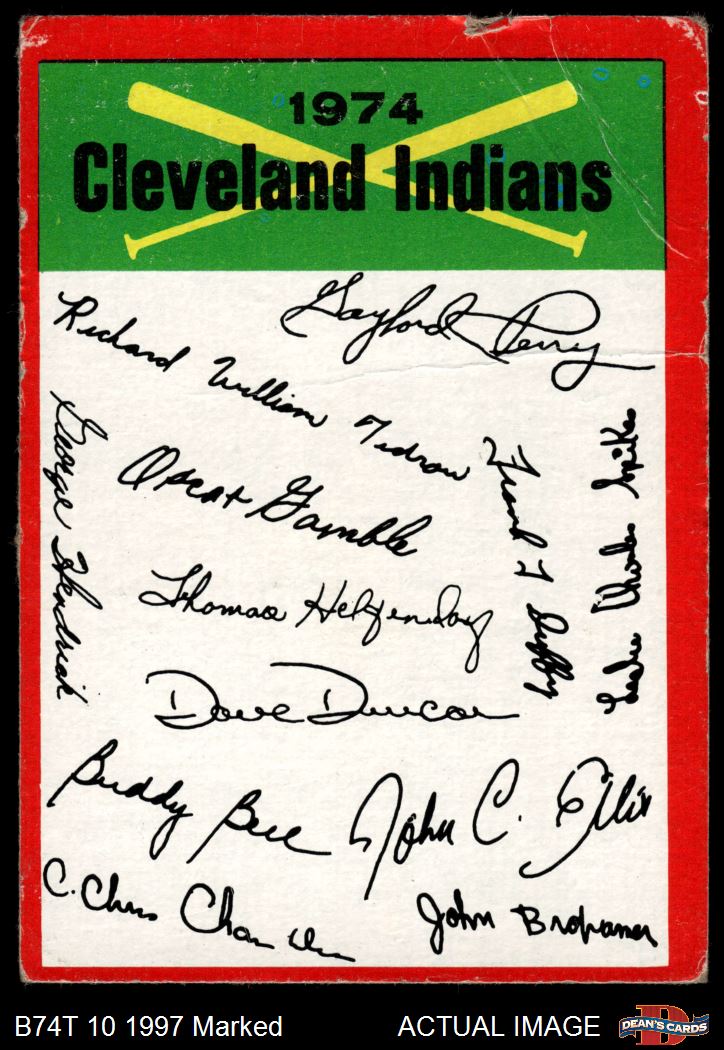 1974
Cleveland Indians
Gaylord Perry
Richard William Tidrow
George Hendrick
Oscar Gamble
Frank T Duffy
Leslie Charles Spikes
Thomas Hilgendorf
Dave Duncan
Buddy Bell
John C. Ellis
C. Chris Chambliss
John Brohamer
B74T 10 1997 Marked
ACTUAL IMAGE
D
DEAN'S CARDS